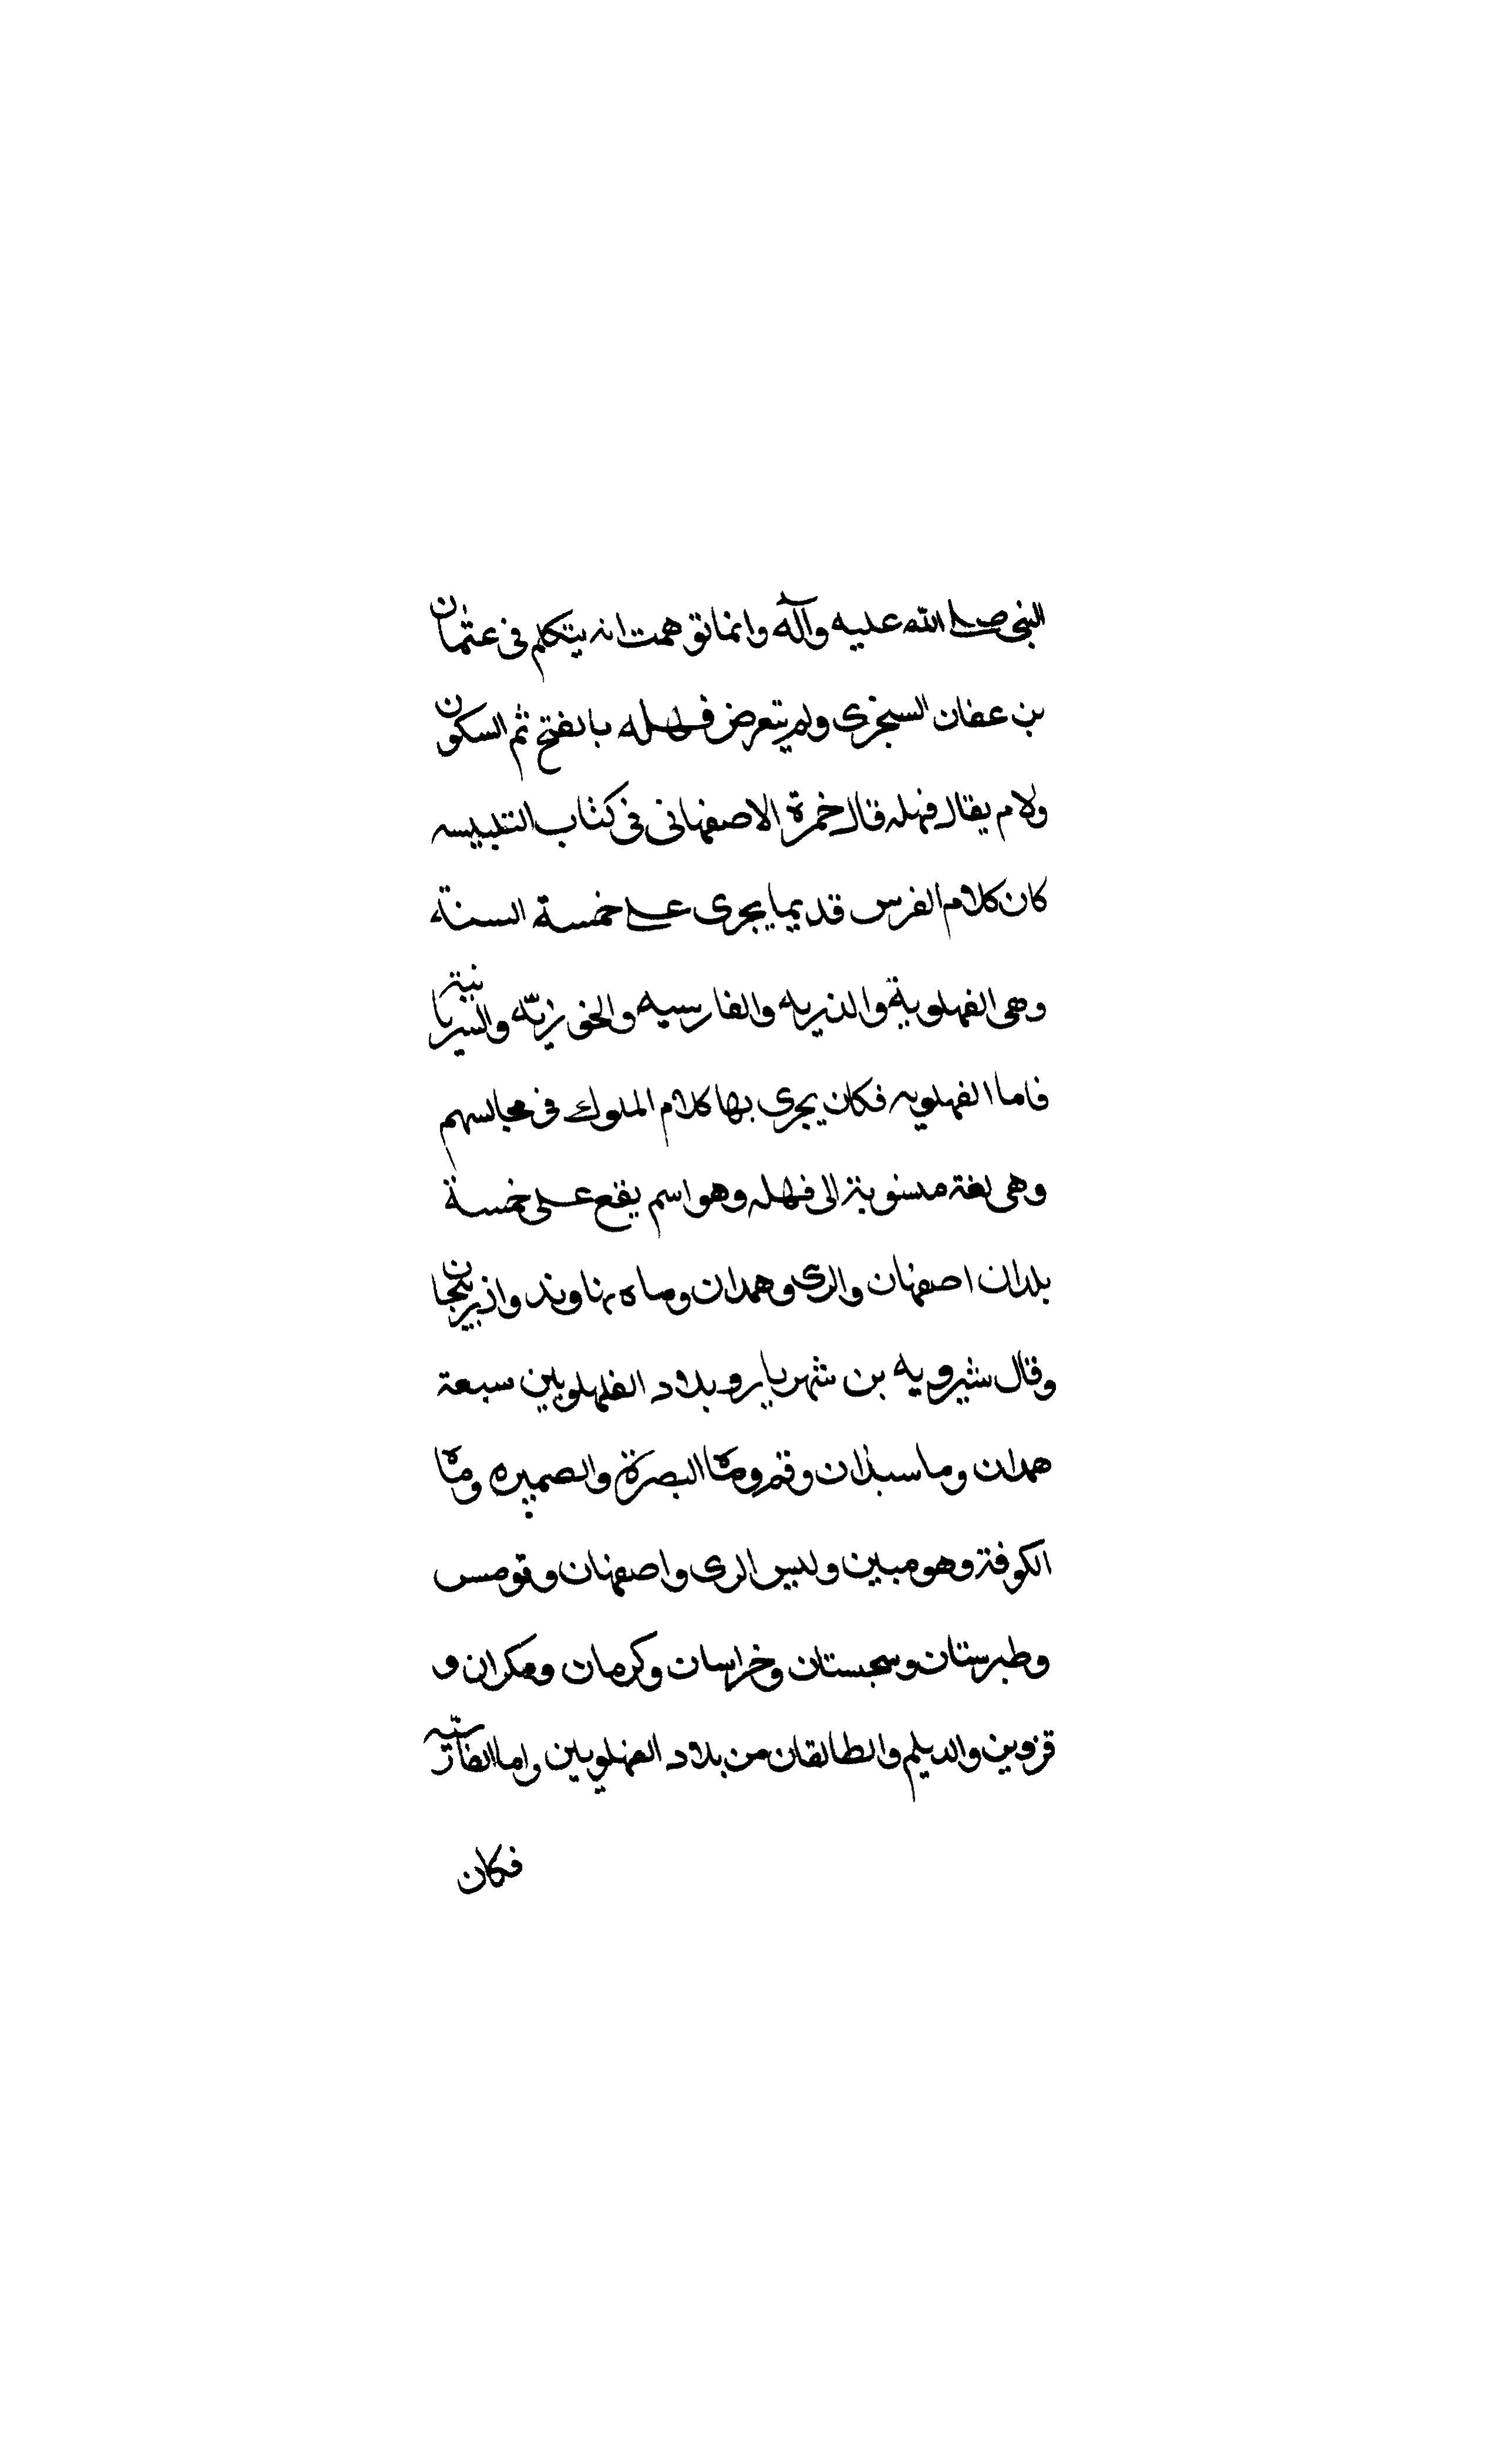 النبی صلی الله علیه وآله وانما توهمت انه یتکلم فی عثمان
بن عفان السجزی ولم یتعرض فهله بالفتح ثم السکون
ولام یقال فهله قال حمزة الاصفهانی فی کتاب التنبیه
کان کلام الفرس قدیما یجری علی خمسة السنة
وهی الفهلویة والدریه والفارسیه والخوزیّه والسریانیة
فاما الفهلویه فکان یجری بها کلام الملوک فی مجالسهم
وهی لغة منسوبة الی فهله وهو اسم یقع علی خمسة
بلدان اصفهان والری وهمدان وماه نهاوند واذربیجان
وقال شیرویه بن شهریار وبلاد الفهلویین سبعة
همدان وماسبذان وقم وماه البصرة والصمیره وماه
الکوفة وهو مبین ولیس الری واصفهان وقومس
وطبرستان وسجستان وخراسان وکرمان ومکران و
قزوین والدیلم والطالقان من بلاد الفهلویین واما الفارسیّه
فکان